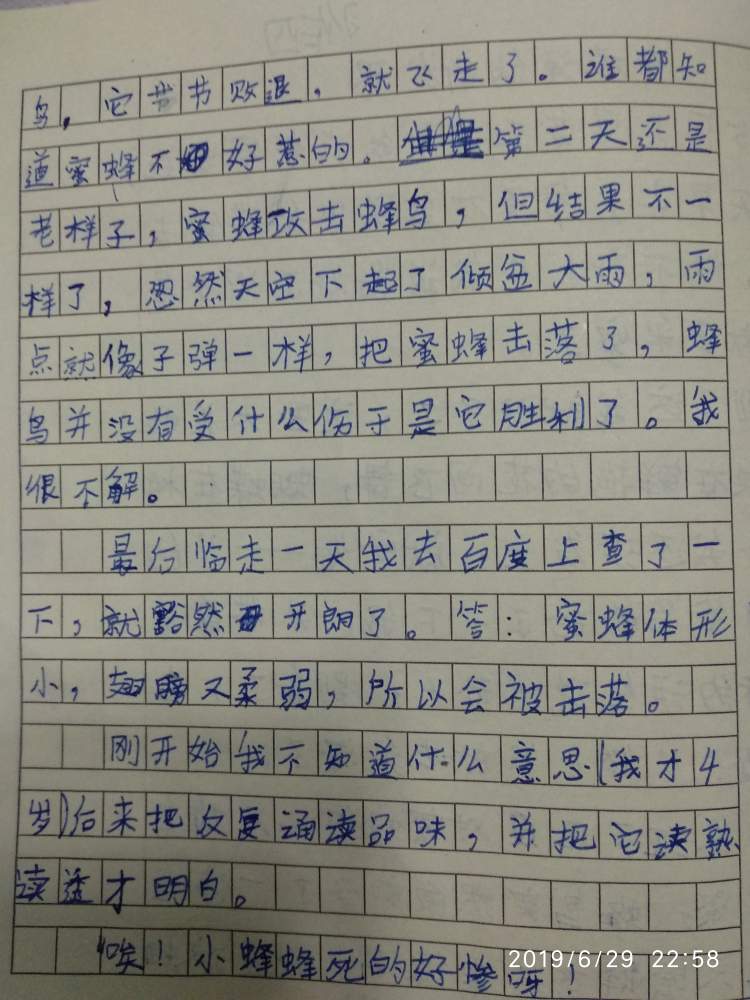 鸟，它节节败退，就飞走了。谁都知
道蜜蜂不好惹的。第二天还是
老样子，蜜蜂攻击蜂鸟，但结果不一
样了，忽然天空下起了倾盆大雨，雨
点就像子弹一样，把蜜蜂击落了，蜂
鸟并没有受什么伤于是它胜利了。我
很不解。
最后临走一天我去百度上查了一
下，就豁然开朗了。答：蜜蜂体形
小，翅膀又柔弱，所以会被击落。
刚开始我不知道什么意思(我才4
岁)后来把反复诵读品味，并把它读熟
读透才明白。
"唉！小蜂蜂死的好惨呀！
2019/6/29 22:58